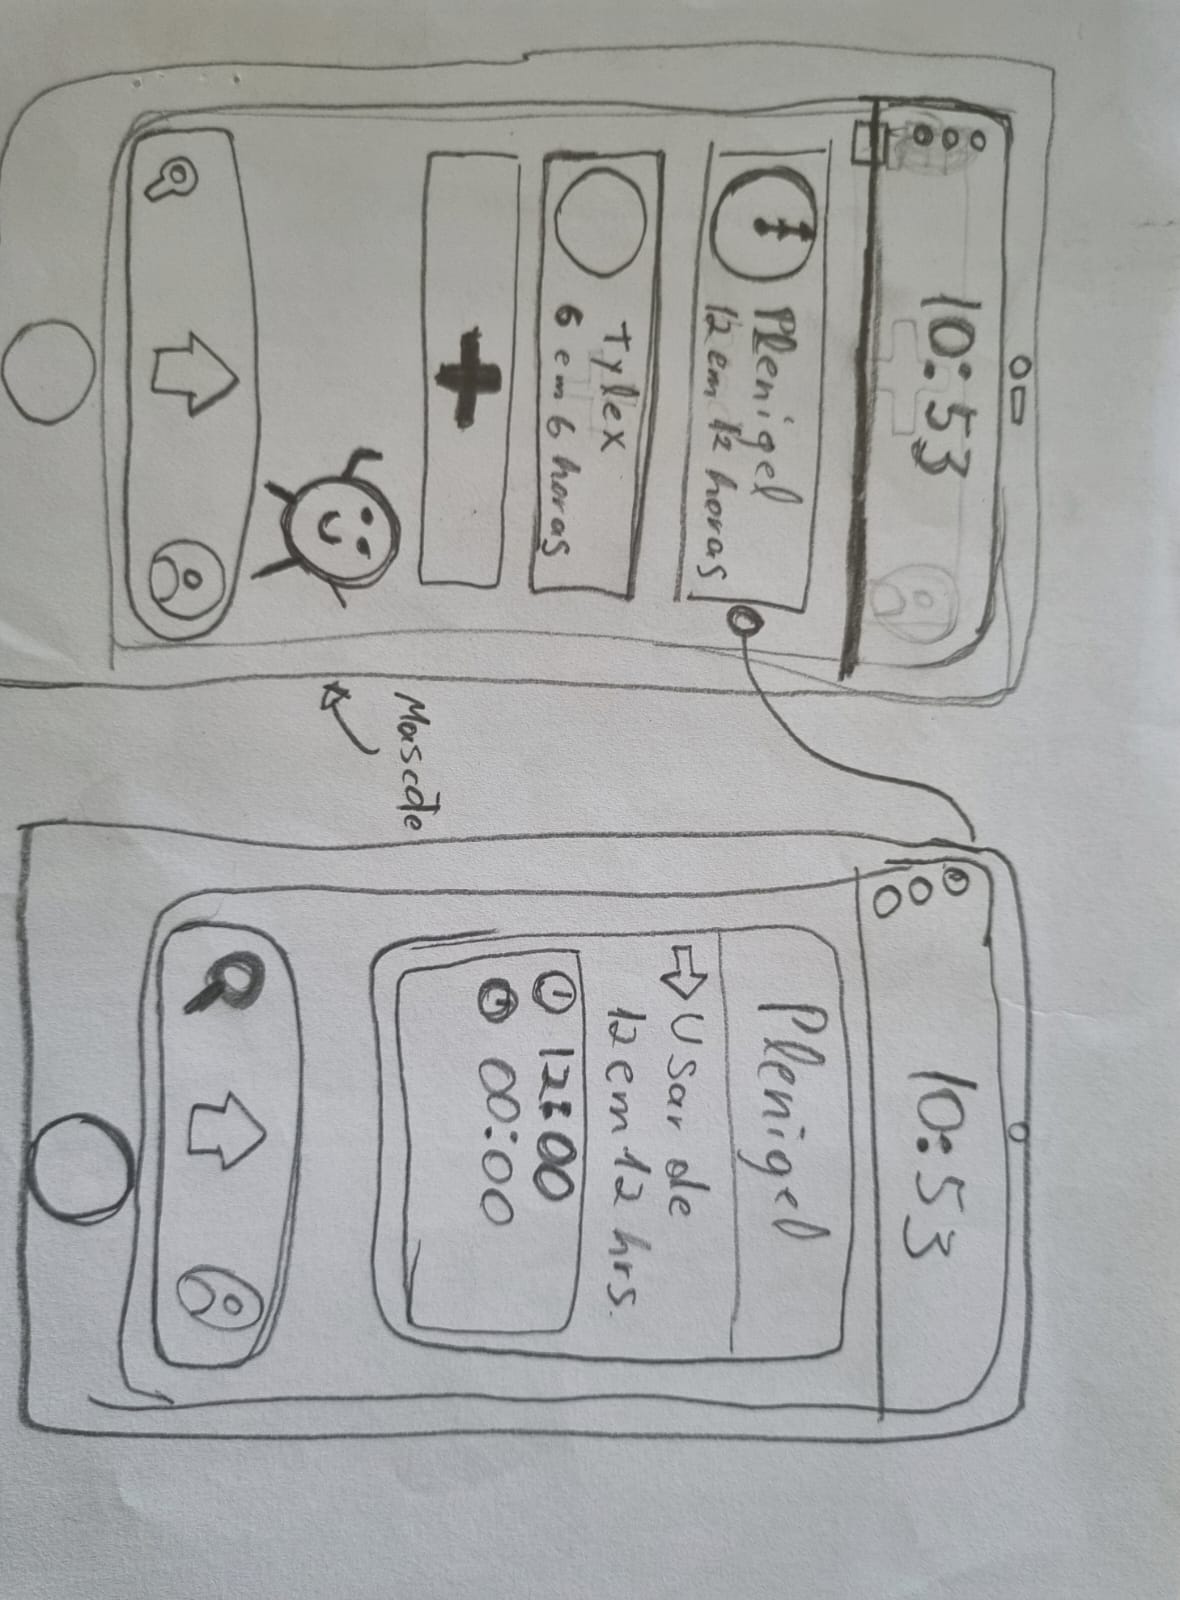 10:53
Plenigel
12 em 12 horas
Tylex
6 em 6 horas
Mascote
10:53
Plenigel
Usar de
12 em 12 hrs.
12:00
00:00